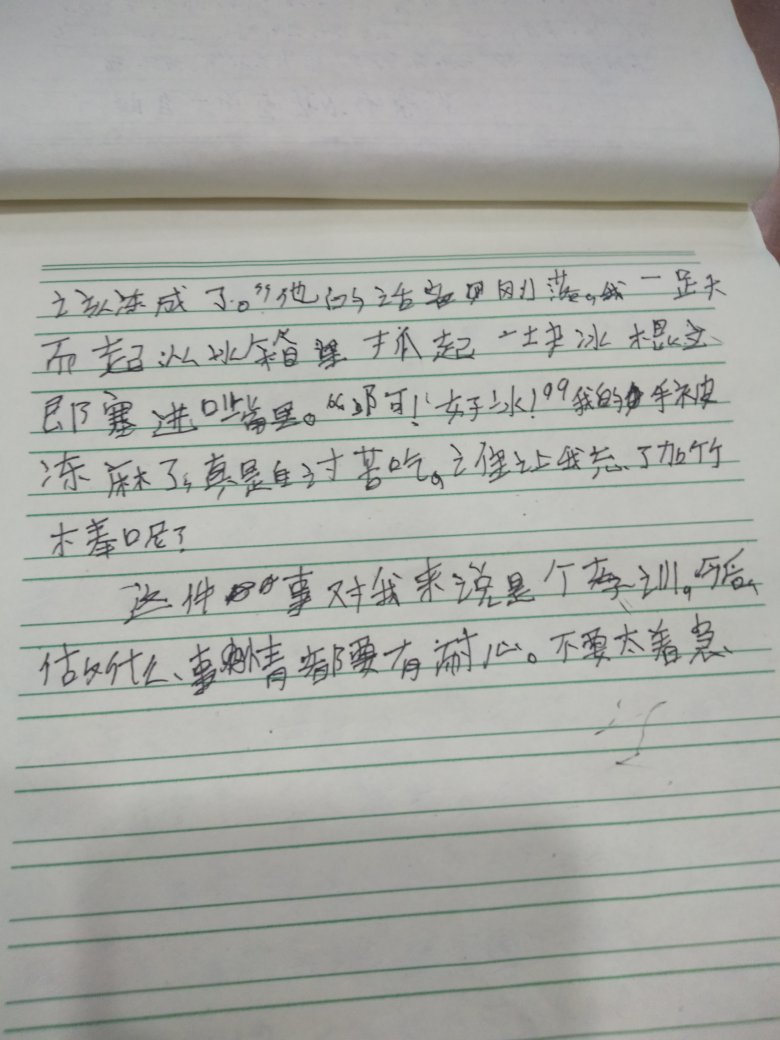 该冻成了。”他的话刚落，我一跃
而起从冰箱里抓起一块冰想立
即塞进嘴里。“啊！好冰！”我的手被
冻麻了，真是自讨苦吃。谁让我忘了加竹
木棒呢？
这件事对我来说是个教训。以后，
做什么事情都要有耐心。不要太着急